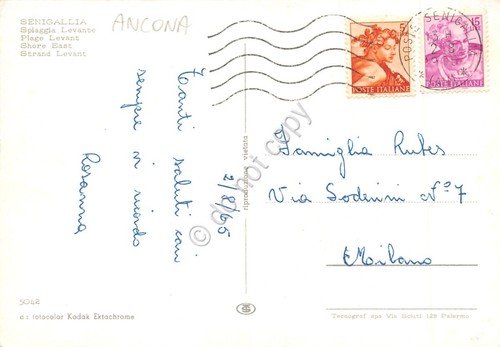 SENIGALLIA
Spiaggia Levante
Plage Levant
Shore East
Strand Levant
ANCONA
Tanti saluti cari
sempre vi ricordo
Rosanna
2/8/65
riproduzione vietata
Famiglia Rubes
Via Soderini N° 7
Milano
POSTE ITALIANE
5
POSTE ITALIANE
15
SENIGALLIA
5042
fotocolor Kodak Ektochrome
Tecnograf spa Via Sciuti 128 Palermo
do not copy